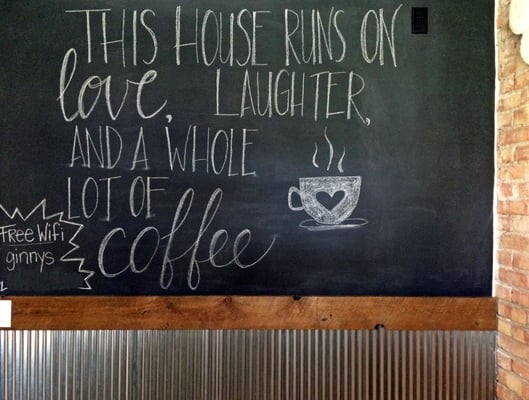 THIS HOUSE RUNS ON
love, LAUGHTER,
AND A WHOLE
LOT OF
coffee
Free Wifi
ginnys